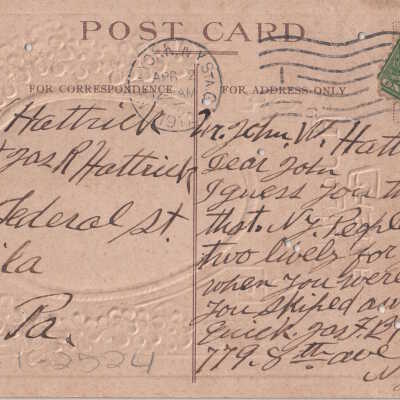 POST CARD
FOR CORRESPONDENCE.
FOR ADDRESS ONLY
N.Y. STA.
APR 2
12 AM
1
Hattrick
Jas R Hattrick
Federal St.
Pa.
1-2524
Mr. John. W. Hatt
Dear John
I guess you t
that. N.Y. People
two lively for
when you were
you skiped aw
quick. Jas. F.
779. 8th ave
N